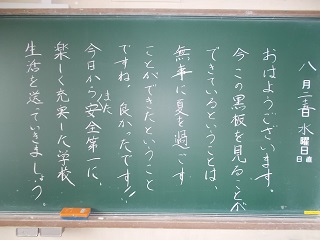 八月二十五日 水曜日
日直
おはようございます。
今この黒板を見ることが
できているということは、
無事に夏を過ごす
ことができたということ
ですね。良かったです!!
今日からまた安全第一に、
楽しく充実した学校
生活を送っていきましょう。